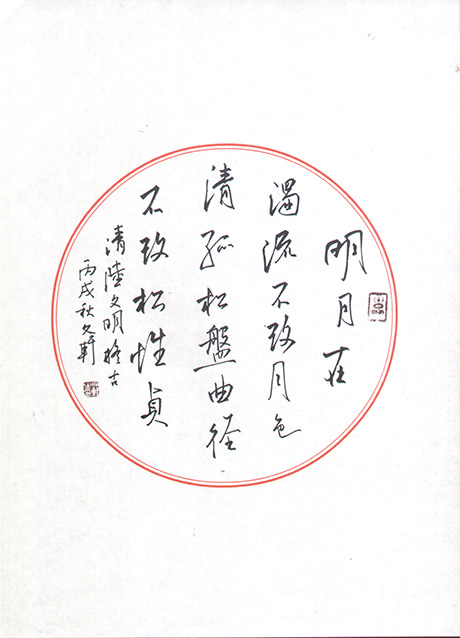 明月在
濁流不改月色
清孤松盤曲径
不改松性貞
清陸文明擬古
丙戌秋文軒